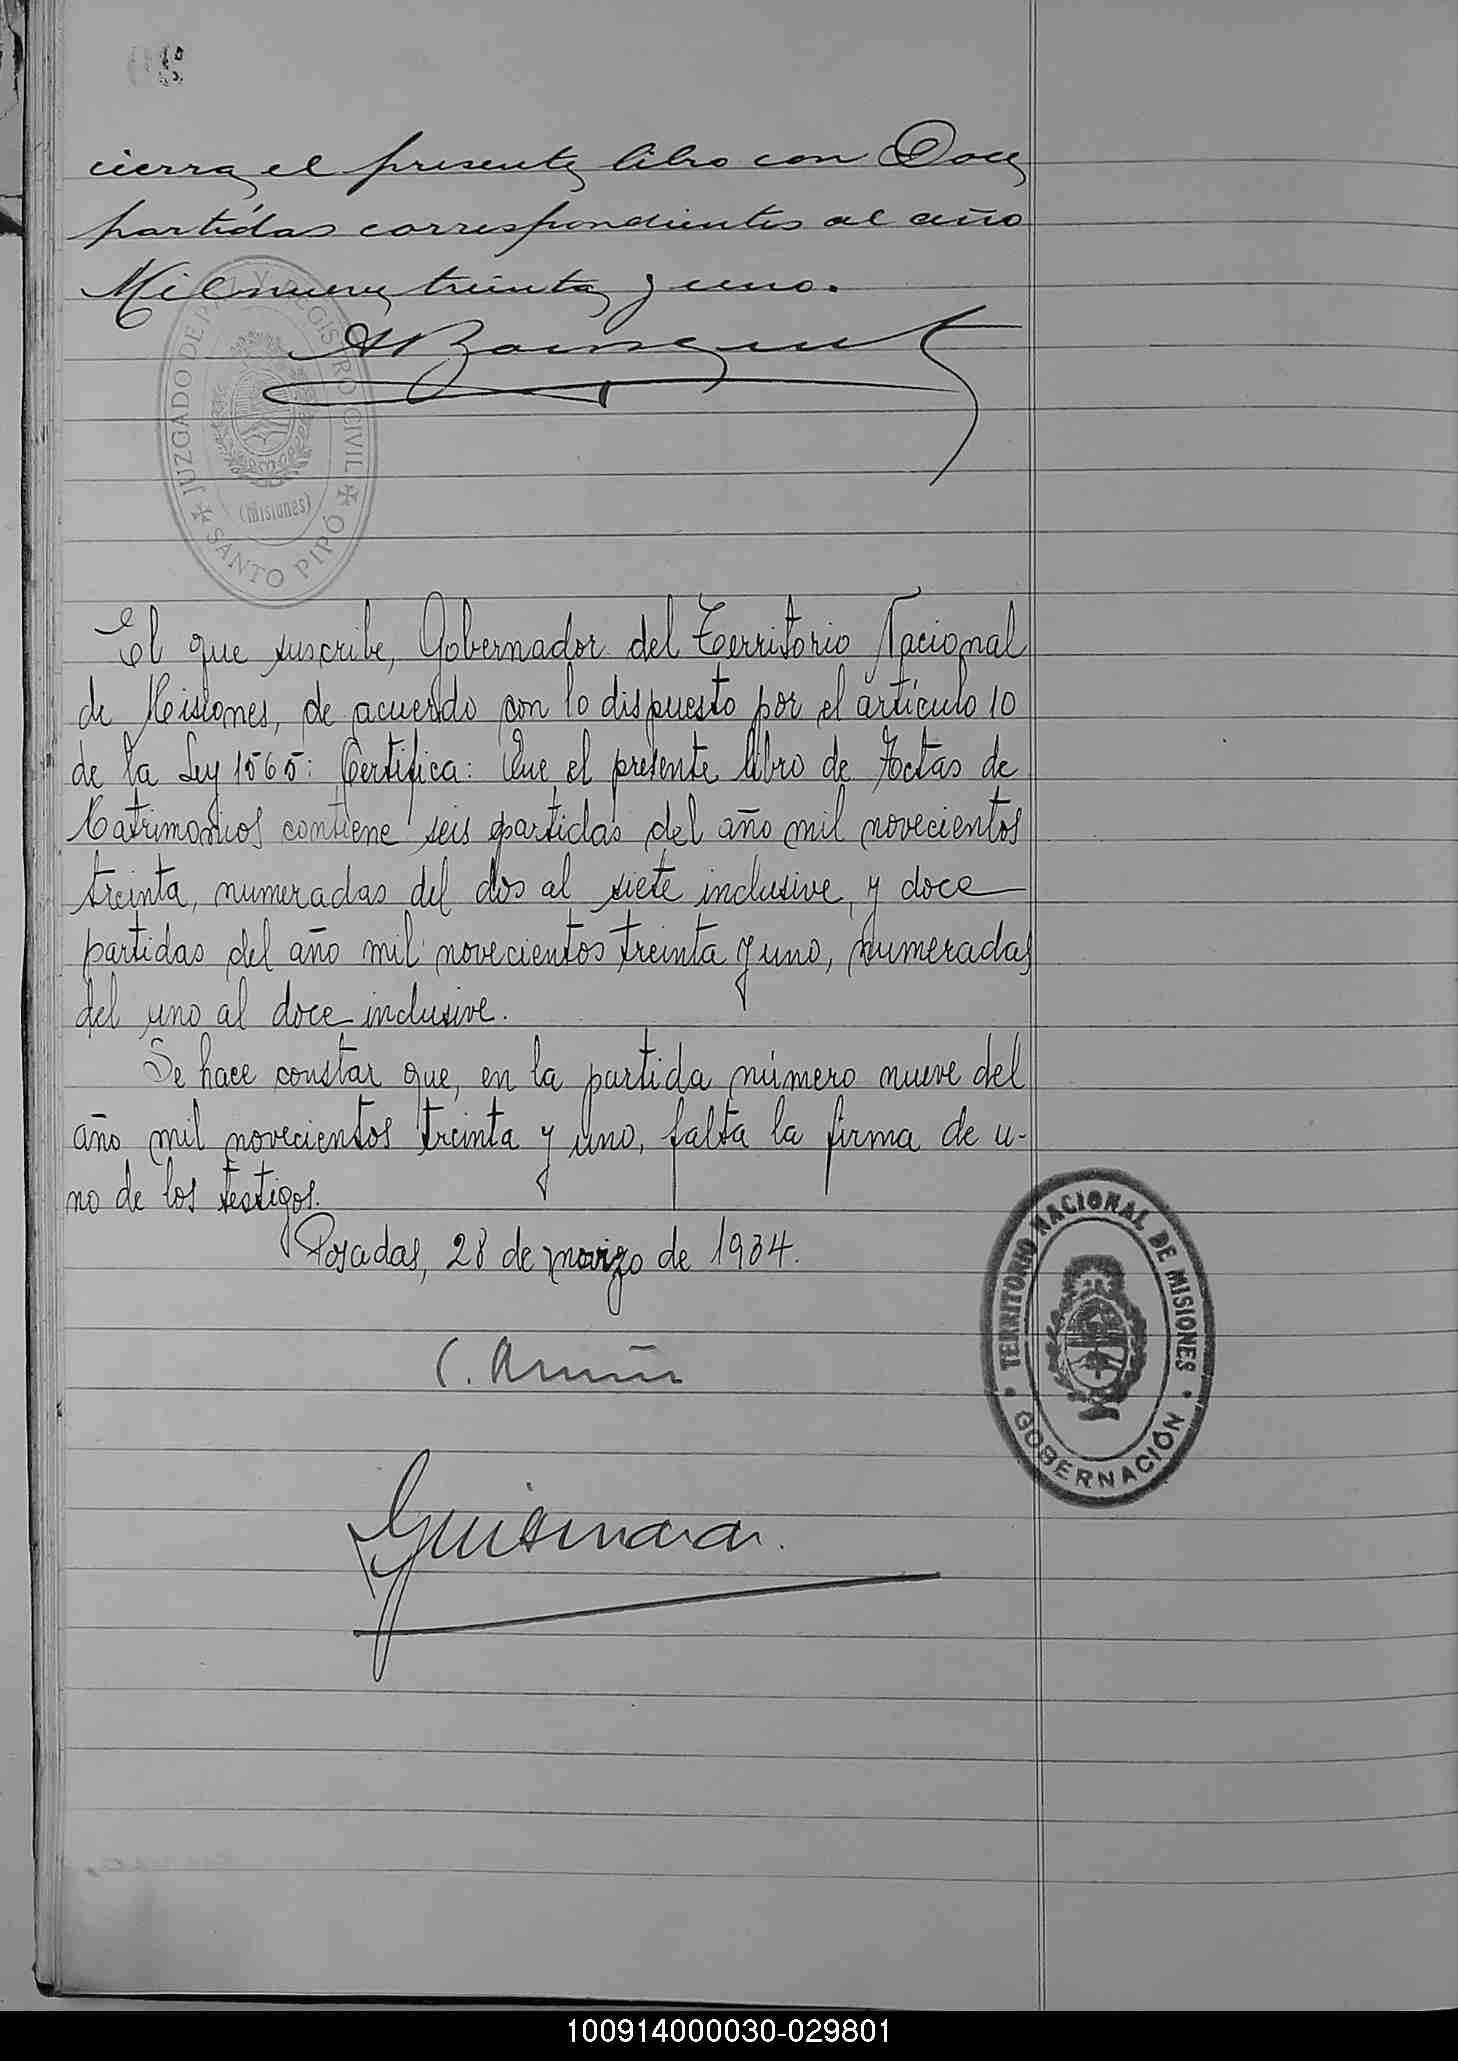 cierra el presente libro con Doce
partidas correspondientes al año
Mil nueve treinta y uno.
JUZGADO DE PAZ Y REGISTRO CIVIL
(Misiones)
SANTO PIPÓ
El que suscribe, Gobernador del Territorio Nacional
de Misiones, de acuerdo con lo dispuesto por el artículo 10
de la Ley 1565: Certifica: Que el presente libro de Actas de
Matrimonios contiene seis partidas del año mil novecientos
treinta, numeradas del dos al siete inclusive, y doce
partidas del año mil novecientos treinta y uno, numeradas
del uno al doce inclusive.
Se hace constar que, en la partida número nueve del
año mil novecientos treinta y uno, falta la firma de u-
no de los testigos.
Posadas, 28 de marzo de 1934.
TERRITORIO NACIONAL DE MISIONES
GOBERNACIÓN
100914000030-029801